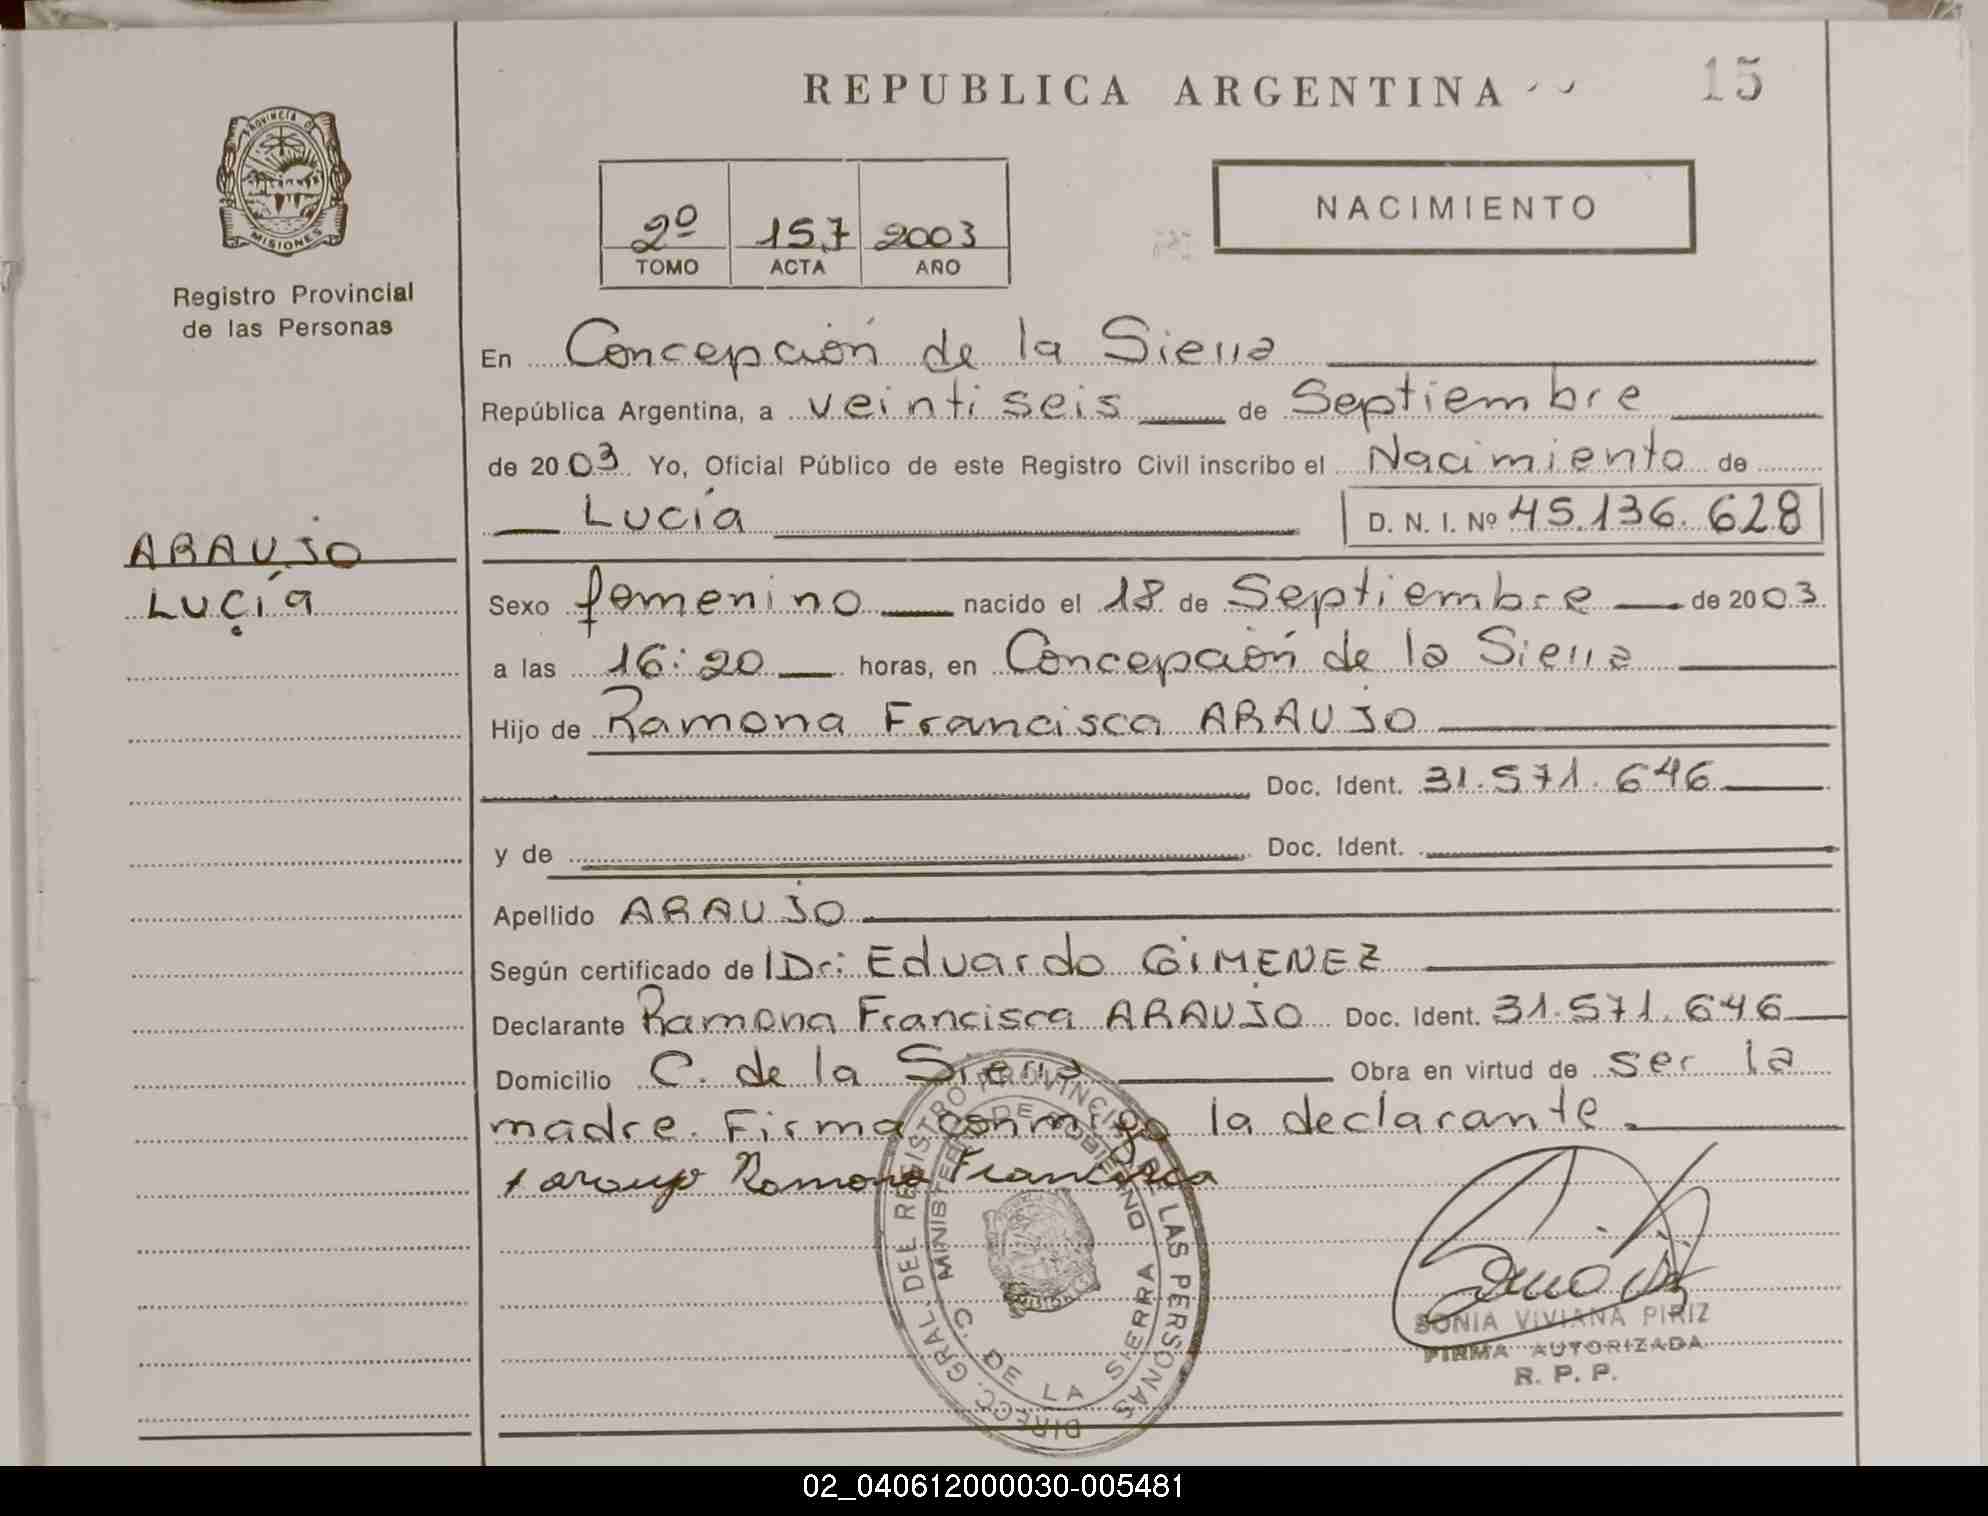 REPUBLICA ARGENTINA
15
PROVINCIA DE
MISIONES
Registro Provincial
de las Personas
2º 157 2003
TOMO ACTA AÑO
NACIMIENTO
En Concepción de la Sierra
República Argentina, a veintiseis de Septiembre
de 2003 Yo, Oficial Público de este Registro Civil inscribo el Nacimiento de
Lucía D. N. I. Nº 45.136.628
ARAUJO
LUCÍA
Sexo femenino nacido el 18 de Septiembre de 2003
a las 16:20 horas, en Concepción de la Sierra
Hijo de Ramona Francisca ARAUJO
Doc. Ident. 31.571.646
y de Doc. Ident.
Apellido ARAUJO
Según certificado de Dr: Eduardo GIMENEZ
Declarante Ramona Francisca ARAUJO Doc. Ident. 31.571.646
Domicilio C. de la Sierra Obra en virtud de ser la
madre. Firma conmigo la declarante.
Araujo Ramona Francisca
DIRECC. GRAL. DEL REGISTRO PROVINCIAL DE LAS PERSONAS
MINISTERIO DE GOBIERNO
C. DE LA SIERRA
SONIA VIVIANA PIRIZ
FIRMA AUTORIZADA
R. P. P.
02_040612000030-005481